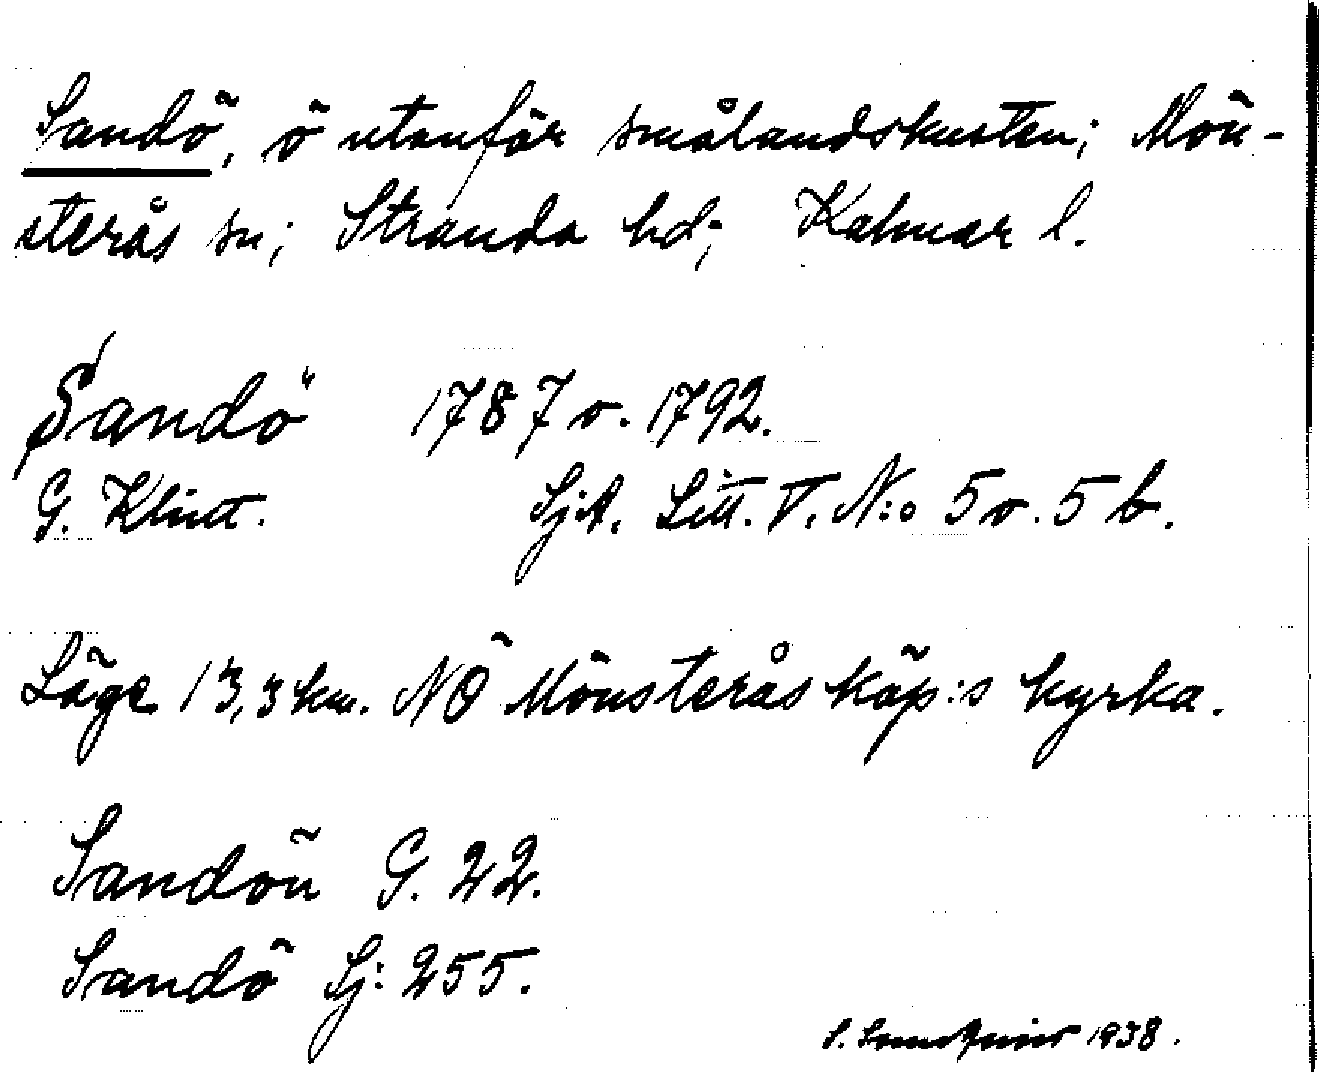 Sandö, ö utanför smålandskusten; Mön-
sterås sn; Stranda hd; Kalmar l.
Sandö 1787 o. 1792.
G. Klint. SjA. Litt. V. N:o 5 o. 5 b.
Läge 13,3 km. NÖ Mönsterås köp:s kyrka.
Sandön G. 22.
Sandö Sj: 255.
1938.